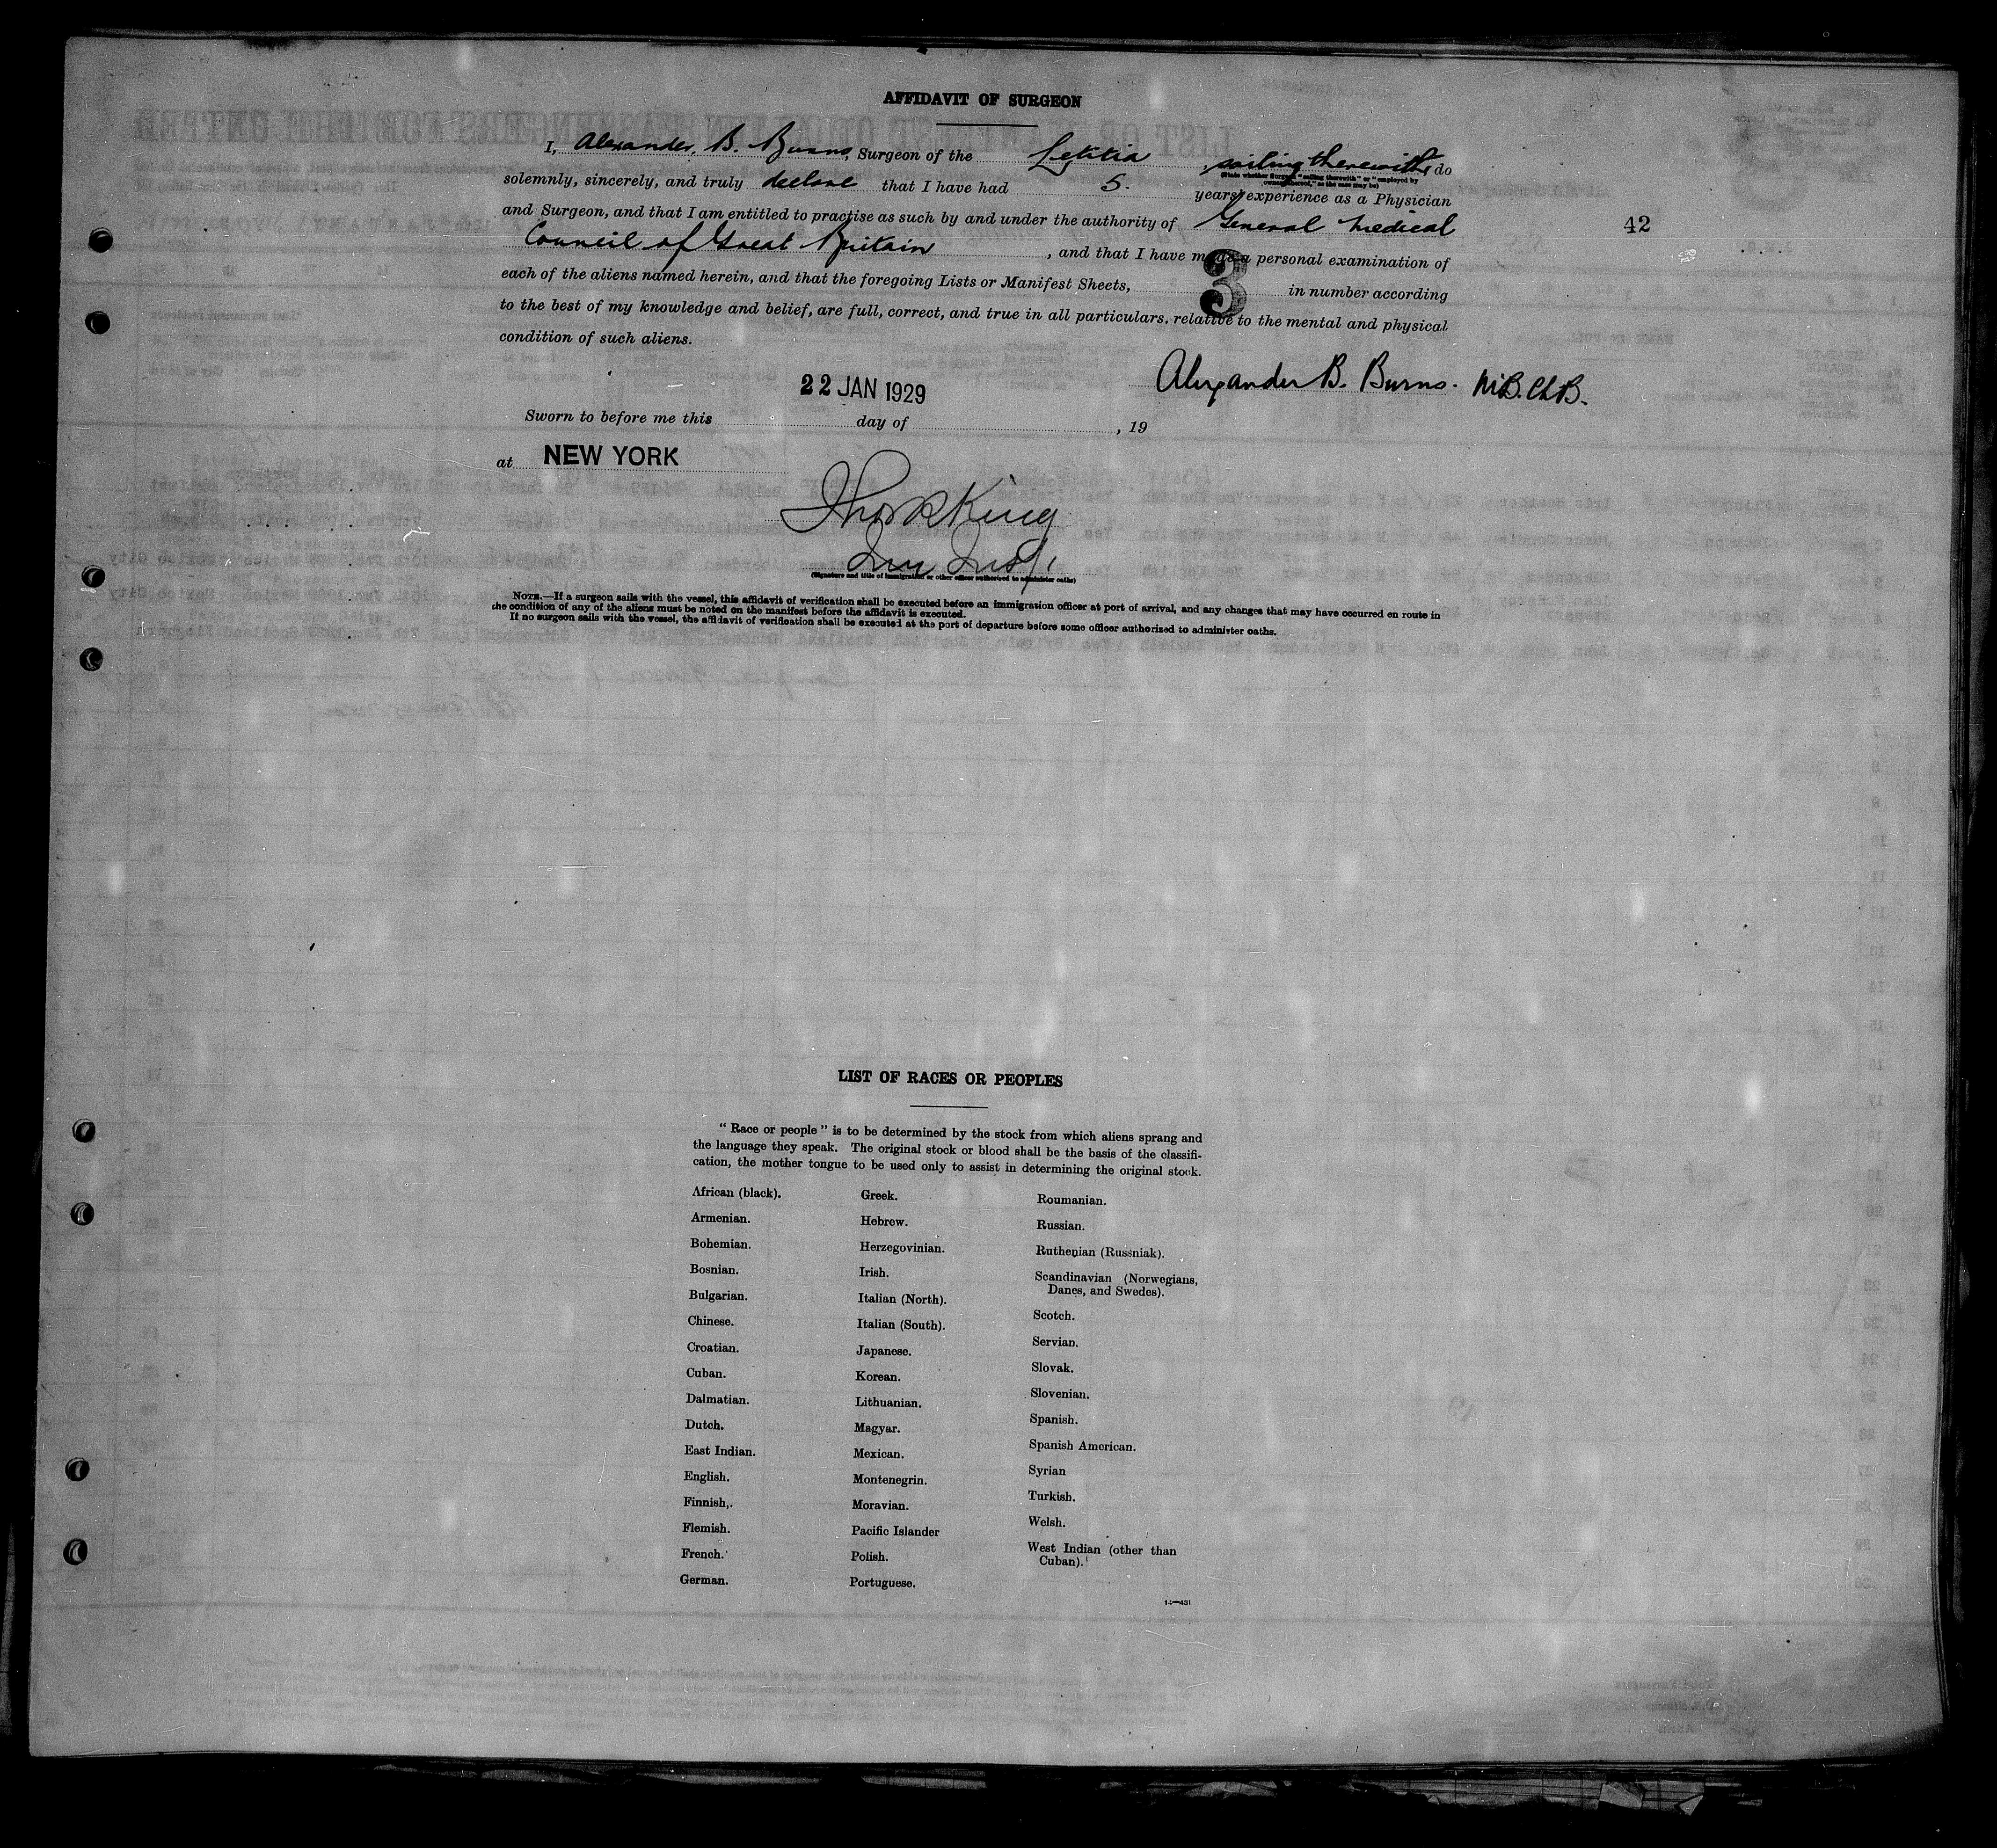 AFFIDAVIT OF SURGEON
I, Alexander. B. Burns, Surgeon of the Letitia, sailing therewith, do
(State whether Surgeon "sailing therewith" or "employed by
owners thereof," as the case may be)
solemnly, sincerely, and truly declare that I have had 5. years' experience as a Physician
and Surgeon, and that I am entitled to practise as such by and under the authority of General Medical
42
Council of Great Britain, and that I have made a personal examination of
each of the aliens named herein, and that the foregoing Lists or Manifest Sheets, 3 in number according
to the best of my knowledge and belief, are full, correct, and true in all particulars, relative to the mental and physical
condition of such aliens.
22 JAN 1929
Alexander B. Burns. M.B. Ch.B.
Sworn to before me this day of , 19
at NEW YORK
King
(Signature and title of immigration or other officer authorized to administer oaths)
NOTE.—If a surgeon sails with the vessel, this affidavit of verification shall be executed before an immigration officer at port of arrival, and any changes that may have occurred en route in
the condition of any of the aliens must be noted on the manifest before the affidavit is executed.
If no surgeon sails with the vessel, the affidavit of verification shall be executed at the port of departure before some officer authorized to administer oaths.
LIST OF RACES OR PEOPLES
" Race or people " is to be determined by the stock from which aliens sprang and
the language they speak. The original stock or blood shall be the basis of the classifi-
cation, the mother tongue to be used only to assist in determining the original stock.
African (black).
Armenian.
Bohemian.
Bosnian.
Bulgarian.
Chinese.
Croatian.
Cuban.
Dalmatian.
Dutch.
East Indian.
English.
Finnish,.
Flemish.
French.
German.
Greek.
Hebrew.
Herzegovinian.
Irish.
Italian (North).
Italian (South).
Japanese.
Korean.
Lithuanian.
Magyar.
Mexican.
Montenegrin.
Moravian.
Pacific Islander
Polish.
Portuguese.
Roumanian.
Russian.
Ruthenian (Russniak).
Scandinavian (Norwegians,
Danes, and Swedes).
Scotch.
Servian.
Slovak.
Slovenian.
Spanish.
Spanish American.
Syrian
Turkish.
Welsh.
West Indian (other than
Cuban).